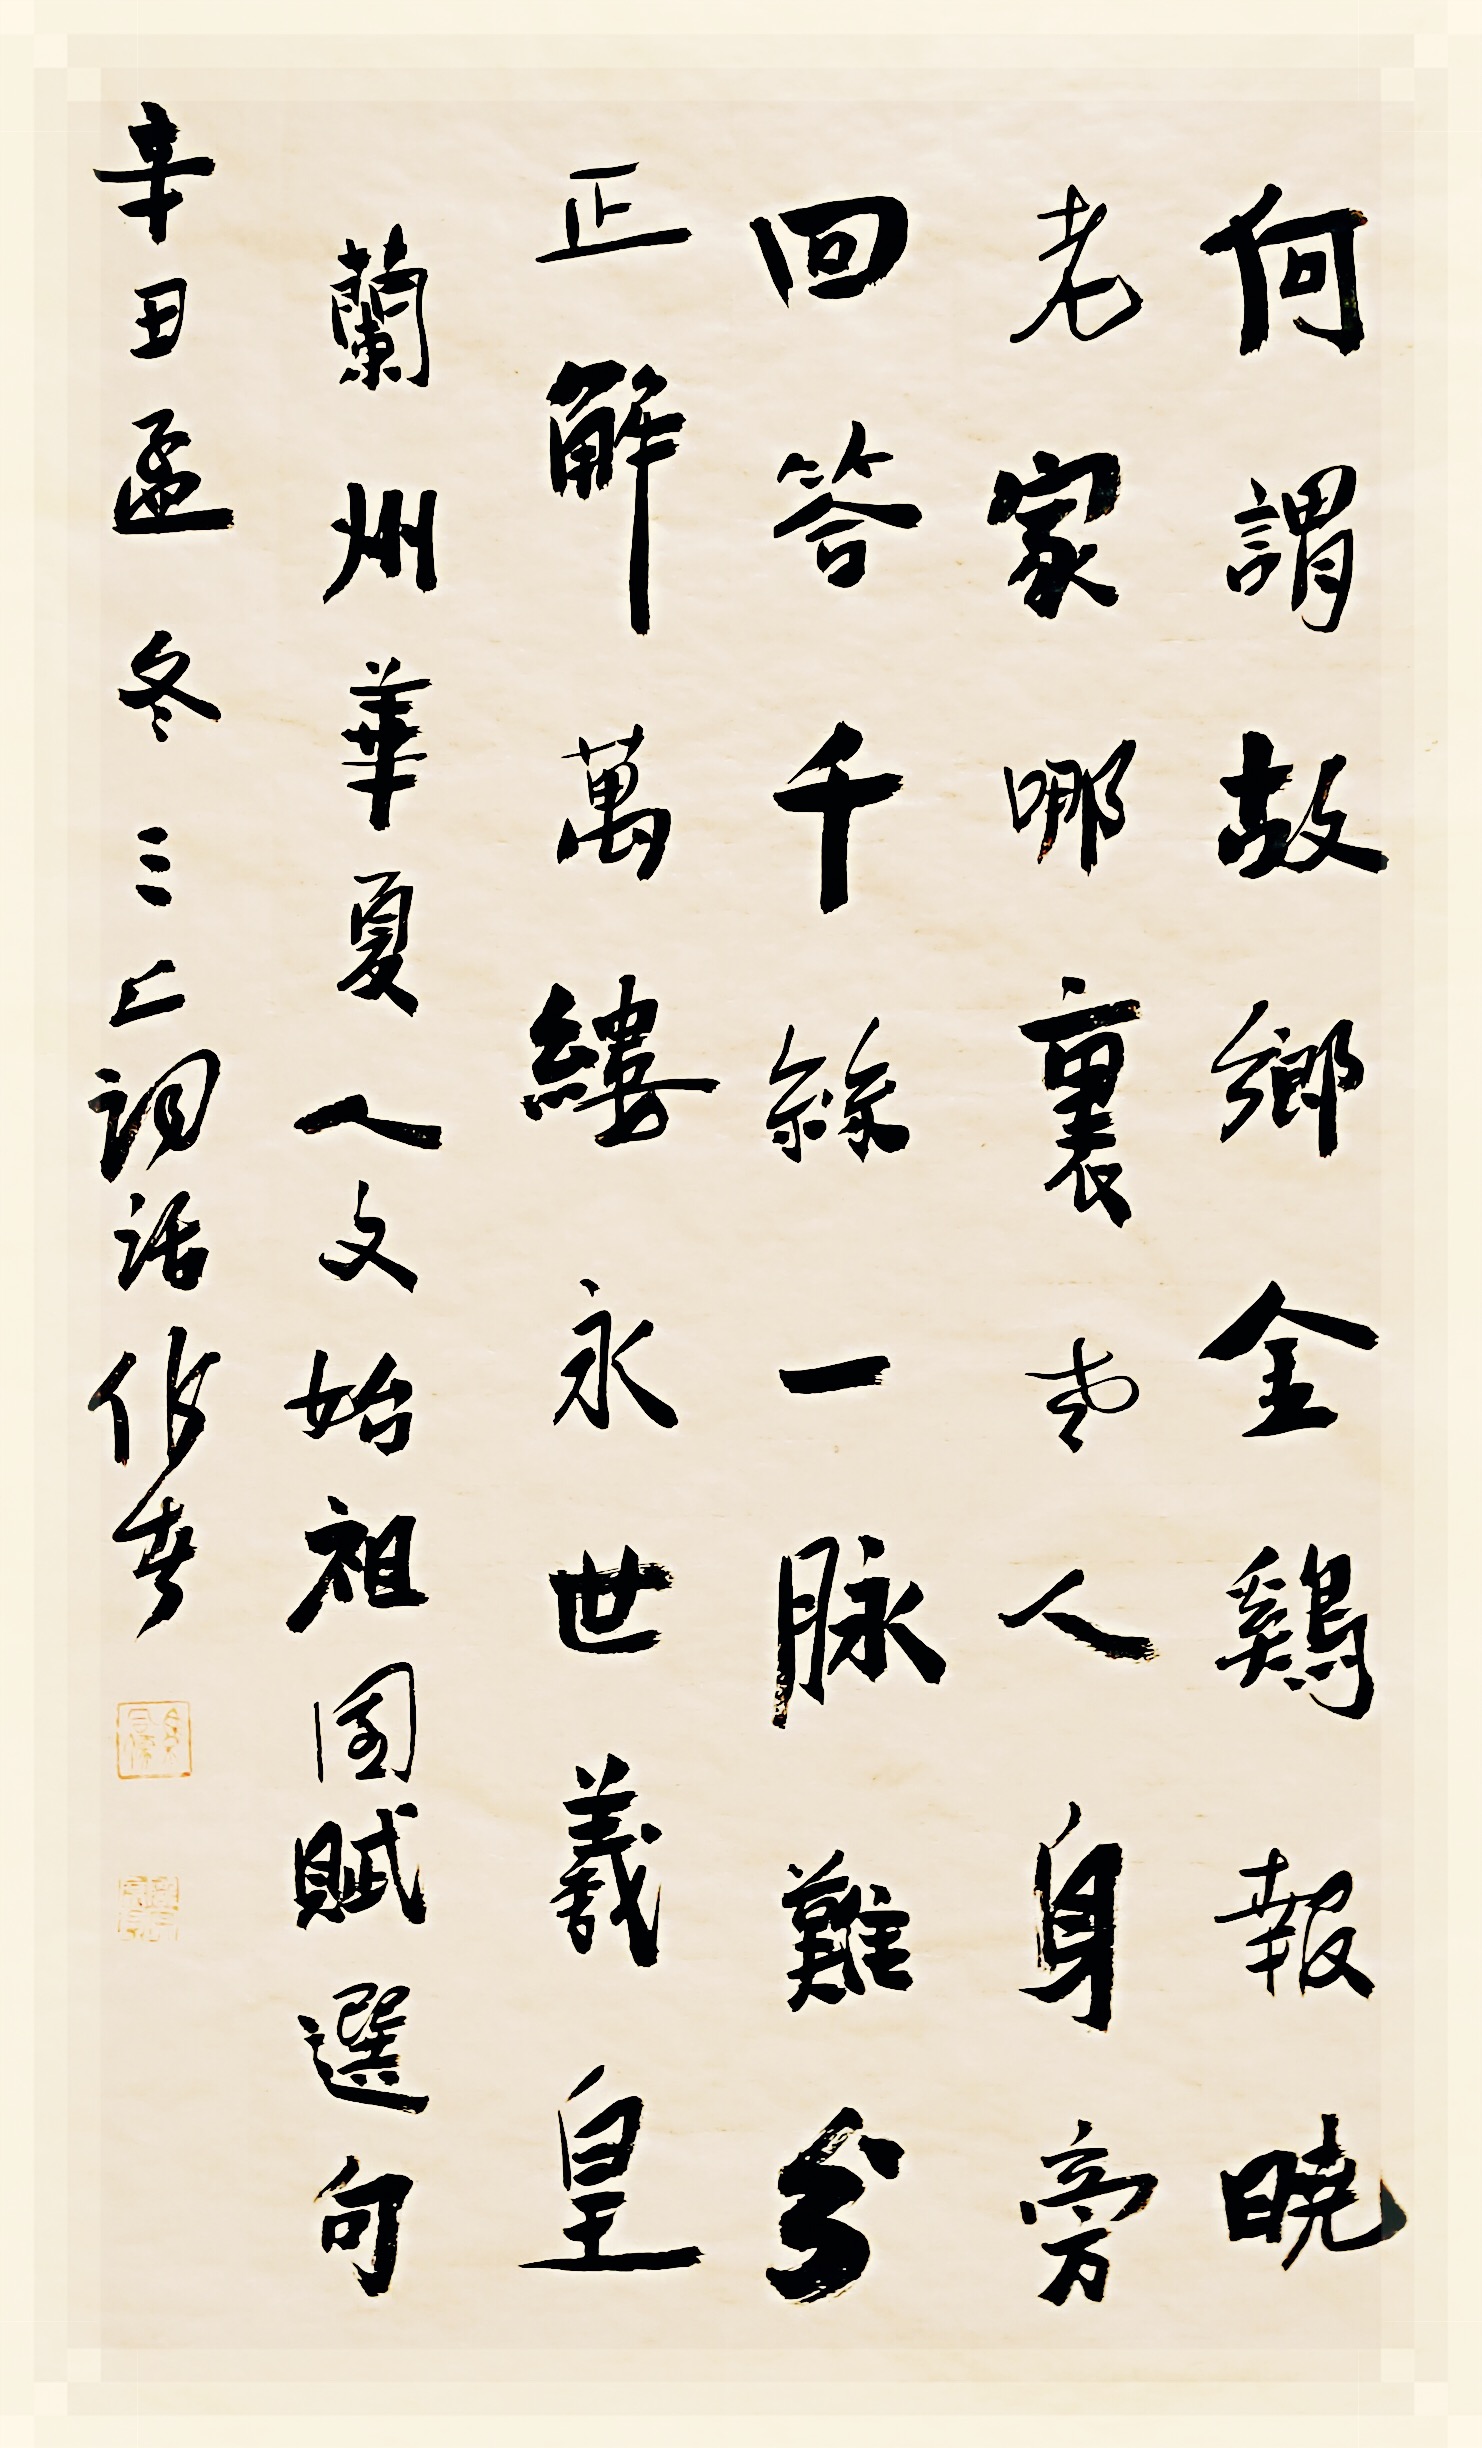 何謂故鄉金鷄報曉
老家哪裏老人身旁
回答千絲一脉難分
正解萬縷永世羲皇
蘭州華夏人文始祖園賦選句
辛丑孟冬三上詞話